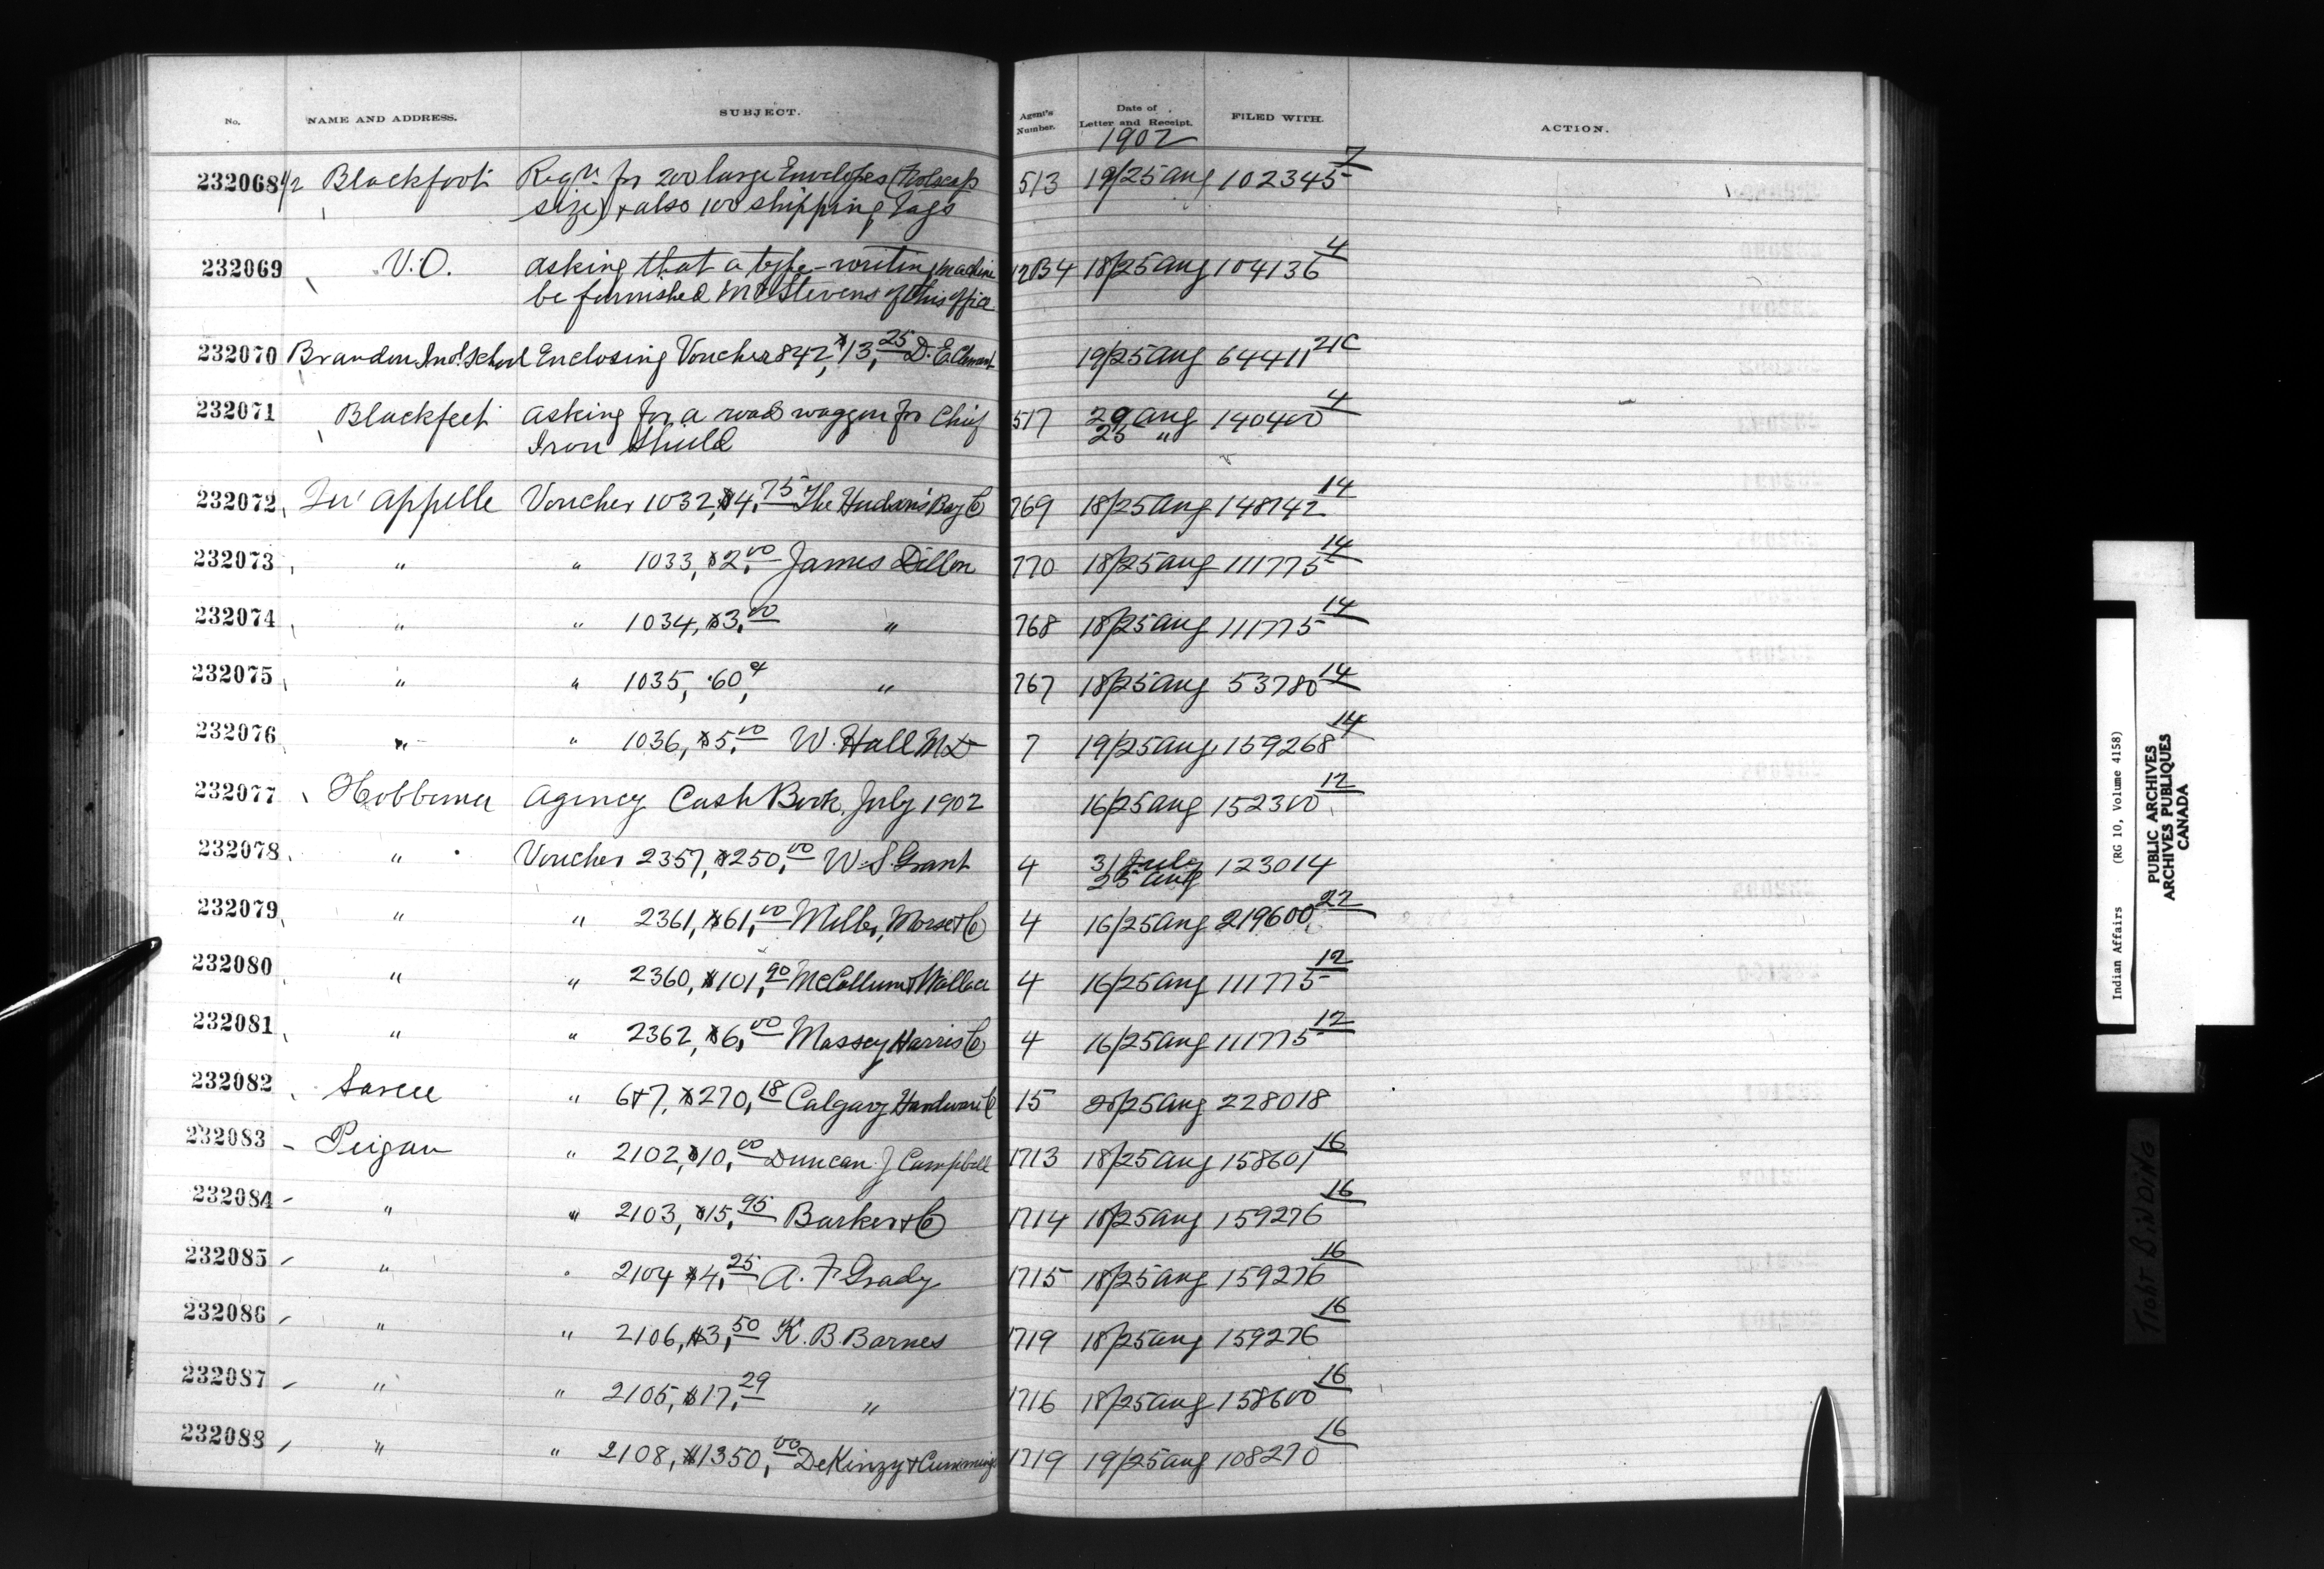 No. NAME AND ADDRESS. SUBJECT. Agent's Number. Date of Letter and Receipt. FILED WITH. ACTION.
1902
232068 1/2 Blackfoot Reqn. for 200 large Envelopes (Foolscap 513 19/25 Aug 102345 7
size) + also 100 shipping Tags
232069 V.O. asking that a type-writing machine 1284 18/25 Aug 104136 4
be furnished Mr Stevens of this office
232070 Brandon Ind. School Enclosing Voucher 842, $13,25 D. E. Clement 19/25 Aug 64411 21C
232071 Blackfeet asking for a road waggon for Chief 517 29 Aug 140400 4
Iron Shield 25 "
232072 Qu'Appelle Voucher 1032, $4,75 The Hudson's Bay Co 769 18/25 Aug 148742 14
232073 " " 1033, $2,00 James Dillon 770 18/25 Aug 111775 14
232074 " " 1034, $3,00 " 768 18/25 Aug 111775 14
232075 " " 1035, .60, " 767 18/25 Aug 53780 14
232076 " " 1036, $5,00 W. Hall MD 7 19/25 Aug 159268 14
232077 Hobbema Agency Cash Book, July 1902 16/25 Aug 152300 12
232078 " Voucher 2357, $250,00 W. S. Grant 4 31 July 123014
25 Aug
232079 " " 2361, $61,00 Miller, Morse + Co 4 16/25 Aug 219600 22
232080 " " 2360, $101,90 McCollum + Wallace 4 16/25 Aug 111775 12
232081 " " 2362, $6,00 Massey Harris Co 4 16/25 Aug 111775 12
232082 Sarcee " 6+7, $270,18 Calgary Hardware Co 15 20/25 Aug 228018
232083 Peigan " 2102, $10,00 Duncan J Campbell 1713 18/25 Aug 158601 16
232084 " " 2103, $15,95 Barker + Co 1714 18/25 Aug 159276 16
232085 " " 2104 $4,25 A. F Grady 1715 18/25 Aug 159276 16
232086 " " 2106, $3,50 K. B. Barnes 1719 18/25 Aug 159276 16
232087 " " 2105, $17,29 " 1716 18/25 Aug 158600 16
232088 " " 2108, $1350,00 DeKinzy + Cummings 1719 19/25 Aug 108270 16
Indian Affairs (RG 10, Volume 4158)
PUBLIC ARCHIVES
ARCHIVES PUBLIQUES
CANADA
TIGHT BINDING